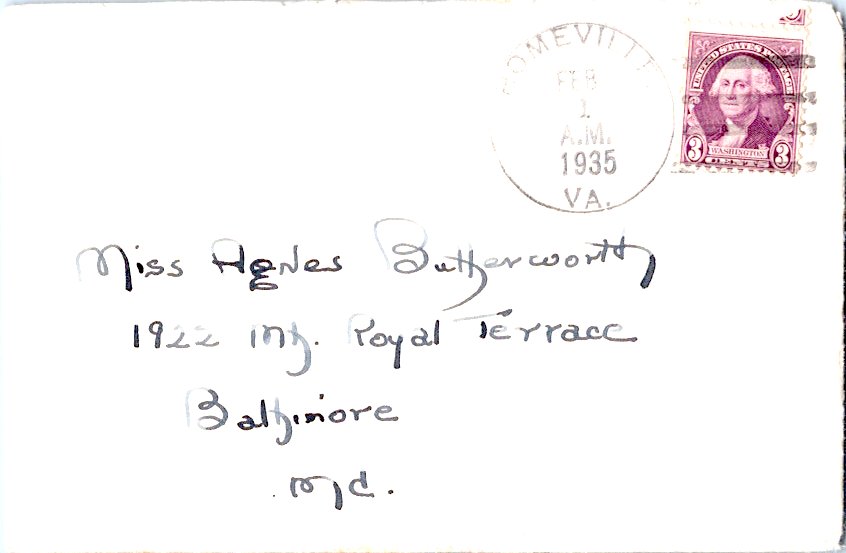 FEB
1
A.M.
1935
VA.
UNITED STATES POSTAGE
WASHINGTON
3 CENTS 3
Miss Agnes Butterworth
1922 Mt. Royal Terrace
Baltimore
Md.